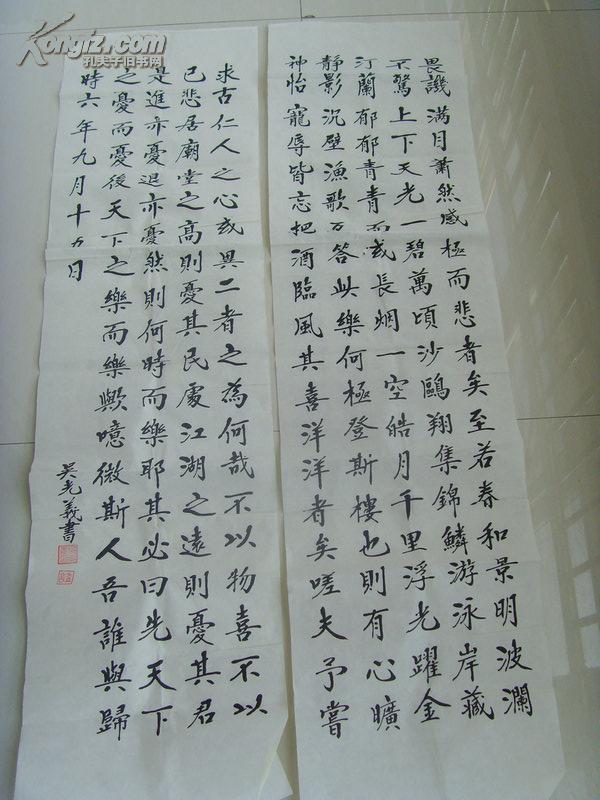 Kongfz.com
孔夫子旧书网
畏譏滿目蕭然感極而悲者矣至若春和景明波瀾
不驚上下天光一碧萬頃沙鷗翔集錦鱗游泳岸藏
汀蘭郁郁青青而或長烟一空皓月千里浮光躍金
靜影沉壁漁歌互答此樂何極登斯樓也則有心曠
神怡寵辱皆忘把酒臨風其喜洋洋者矣嗟夫予嘗
求古仁人之心或異二者之為何哉不以物喜不以
己悲居廟堂之高則憂其民處江湖之遠則憂其君
是進亦憂退亦憂然則何時而樂耶其必曰先天下
之憂而憂後天下之樂而樂歟噫微斯人吾誰與歸
時六年九月十五日
吳光義書